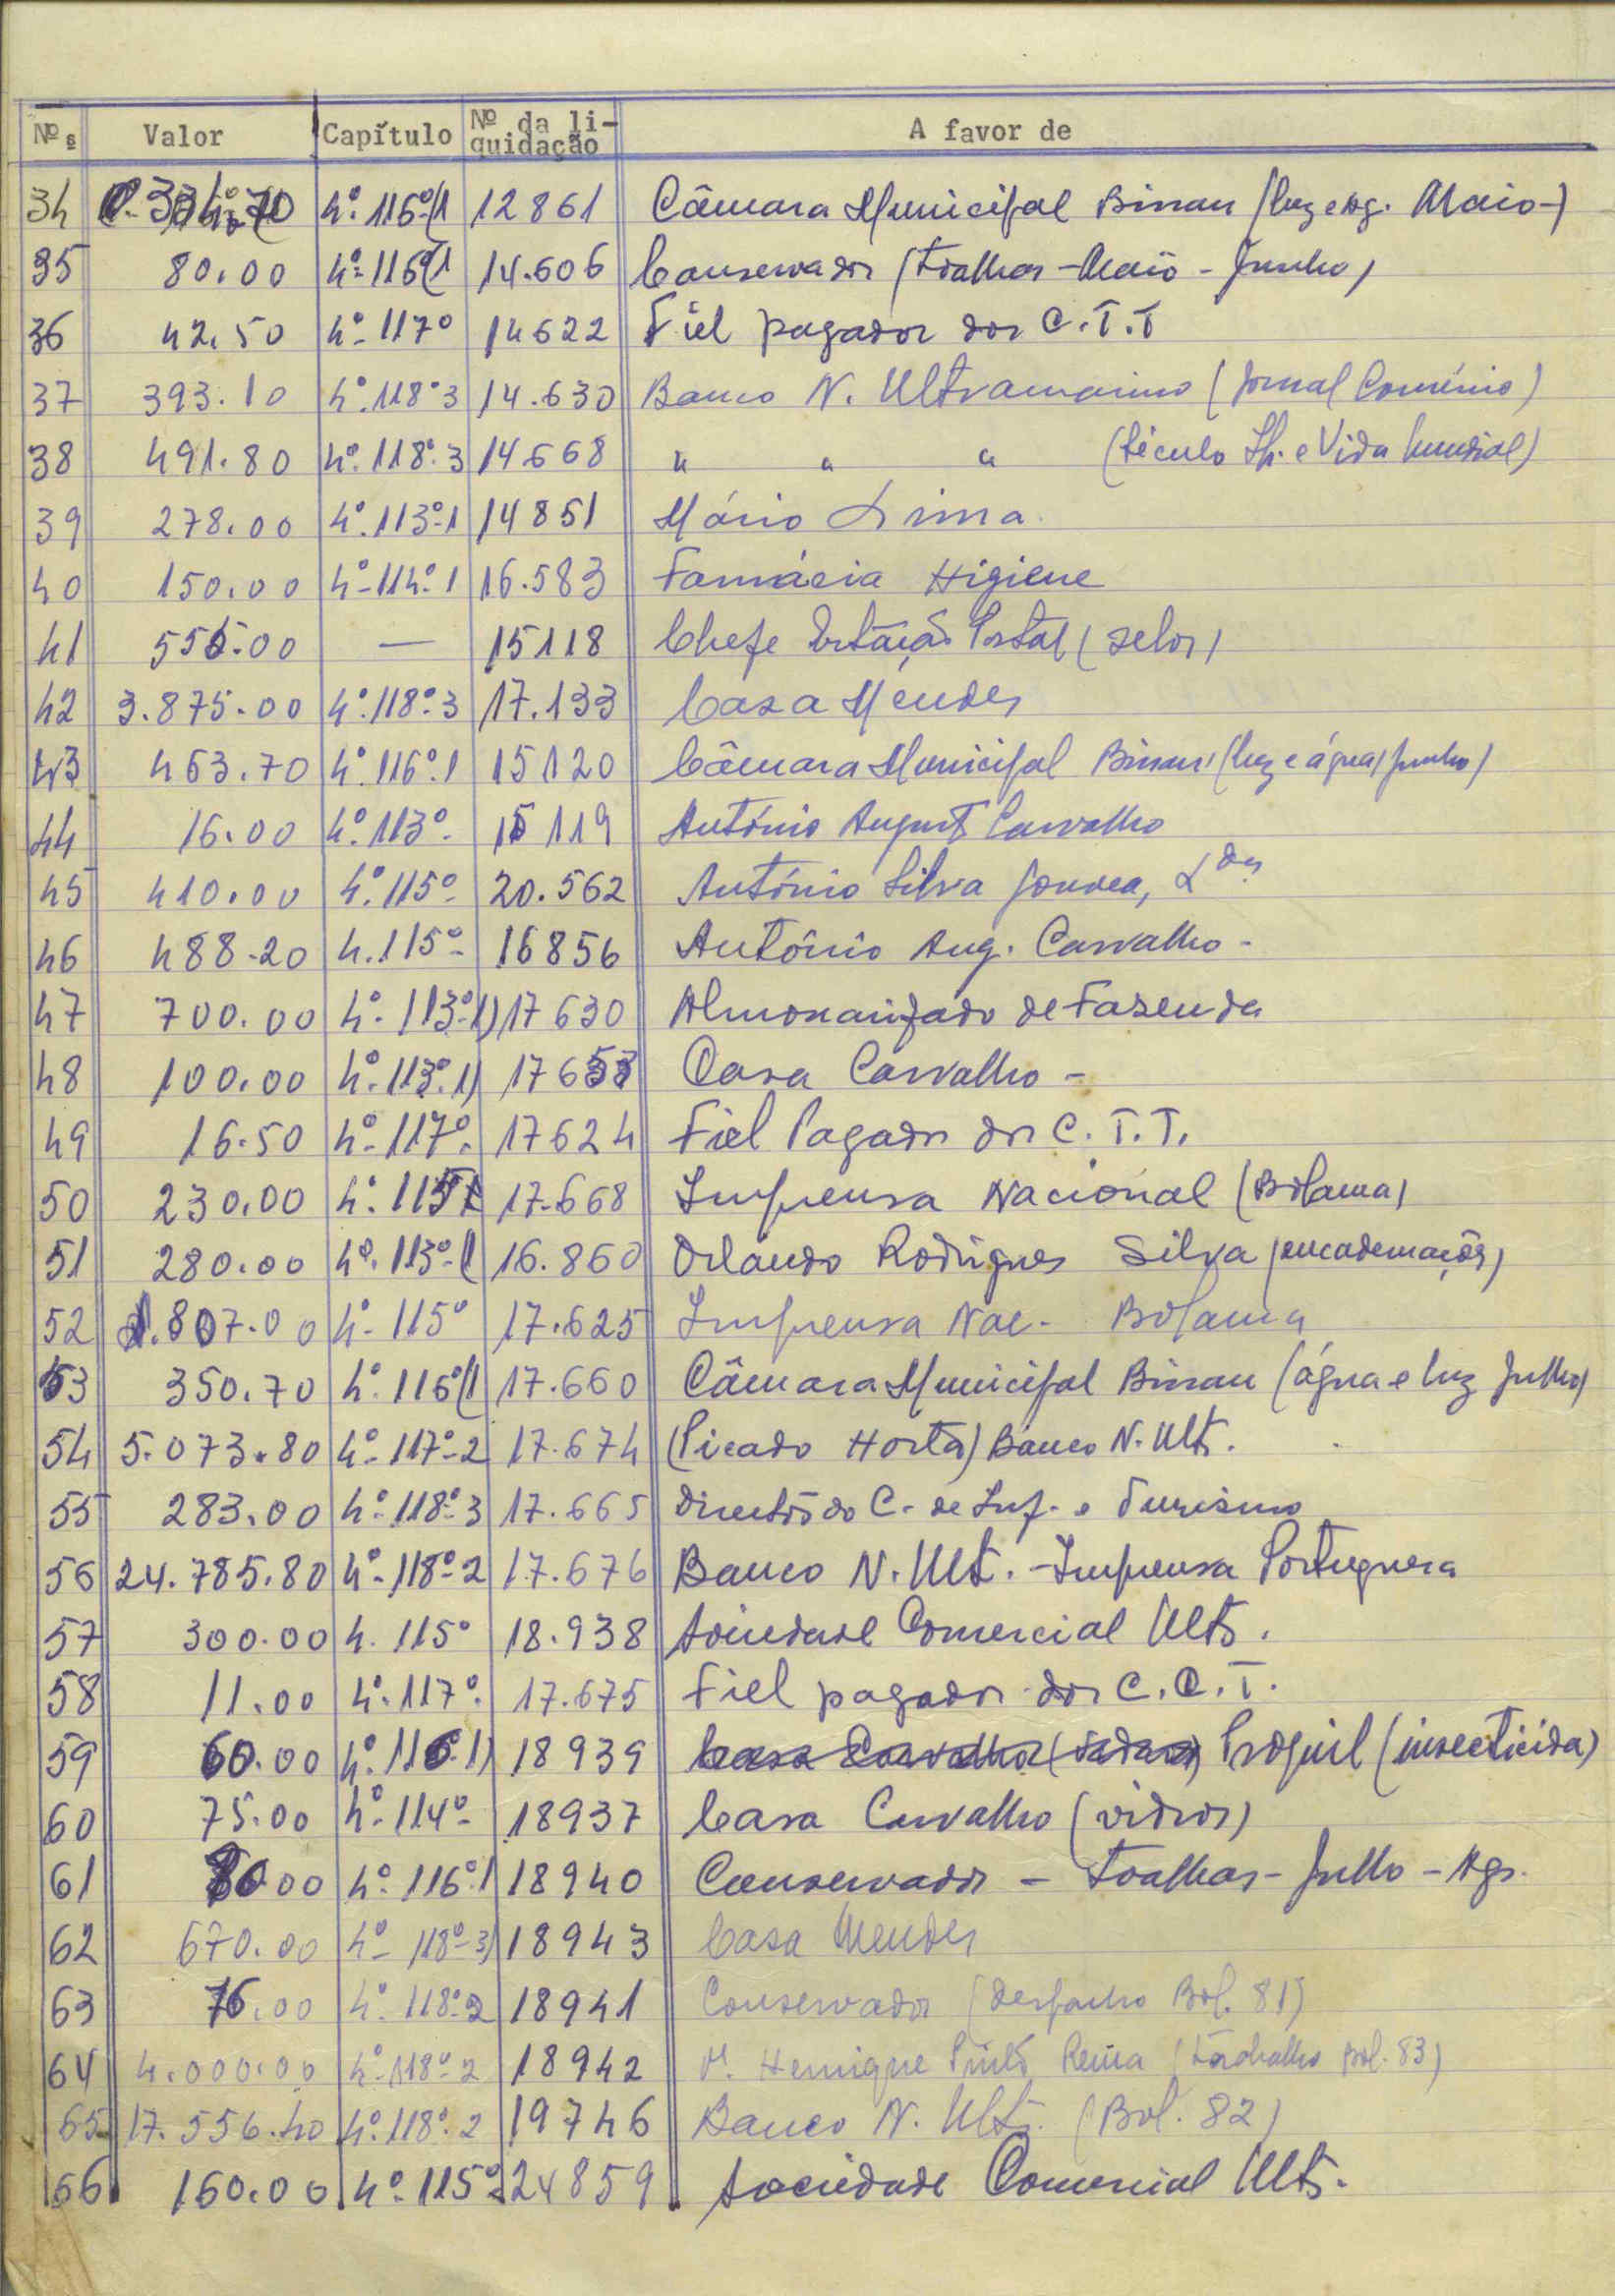 Nºs Valor Capítulo Nº da liquidação A favor de
34 4º. 116º(1 12861 Câmara Municipal Bissau (luz e ág. Maio-)
35 80.00 4º. 116º(1 14.606 Conservador (toalhas - Maio - Junho)
36 42.50 4º. 117º 14622 Fiel pagador dos C.T.T
37 393.10 4º. 118º. 3 14.630 Banco N. Ultramarino (Jornal Comércio)
38 491.80 4º. 118º. 3 14.668 " " " (Século Il. e Vida Mundial)
39 278.00 4º. 113º. 1 14851 Mário Lima.
40 150.00 4º. 114º. 1 16.583 Farmácia Higiene
41 00 — 15118 Chefe Estação Postal (selos)
42 3.875.00 4º. 118º. 3 17.133 Casa Mendes
43 463.70 4º. 116º. 1 15120 Câmara Municipal Bissau (luz e água, Junho)
44 16.00 4º. 113º. 15119 António Augusto Carvalho
45 410.00 4º. 115º 20.562 António Silva Gouvea, Ldª.
46 488.20 4. 115º- 16856 António Aug. Carvalho -
47 700.00 4º. 113º-1) 17630 Almoxarifado de Fazenda
48 100.00 4º. 113º. 1) 17653 Casa Carvalho -
49 16.50 4º. 117º. 17624 Fiel Pagador dos C.T.T.
50 230.00 4º. 115º 17.668 Imprensa Nacional (Bolama)
51 280.00 4º. 113º-(1 16.860 Orlando Rodrigues Silva (encadernações)
52 1.807.00 4º. 115º 17.625 Imprensa Nac. Bolama
53 350.70 4º. 116º(1 17.660 Câmara Municipal Bissau (água e luz Julho)
54 5.073.80 4º. 117º-2 17.674 (Picado Horta) Banco N. Ult.
55 283.00 4º. 118º-3 17.665 Director do C. de Inf. e Turismo
56 24.785.80 4º. 118º-2 17.676 Banco N. Ult. - Imprensa Portuguesa
57 300.00 4. 115º 18.938 Sociedade Comercial Ultr.
58 11.00 4º. 117º. 17.675 Fiel pagador dos C.C.T.
59 60.00 4º. 116º. 1) 18939 Casa Carvalho (vidros) Proquil (insecticida)
60 75.00 4º. 114º- 18937 Casa Carvalho (vidros)
61 80.00 4º. 116º. 1 18940 Conservador - toalhas - Julho - Ag.
62 670.00 4º- 118º-3) 18943 Casa Mendes
63 76.00 4º. 118º-2 18941 Conservador (despacho Bol. 81)
64 4.000.00 4º- 118º-2 18942 Henrique Pinto Rema (trabalho Bol. 83)
65 17.556.40 4º. 118º. 2 19746 Banco N. Ultr. (Bol. 82)
66 160.00 4º. 115º- 24859 Sociedade Comercial Ultr.